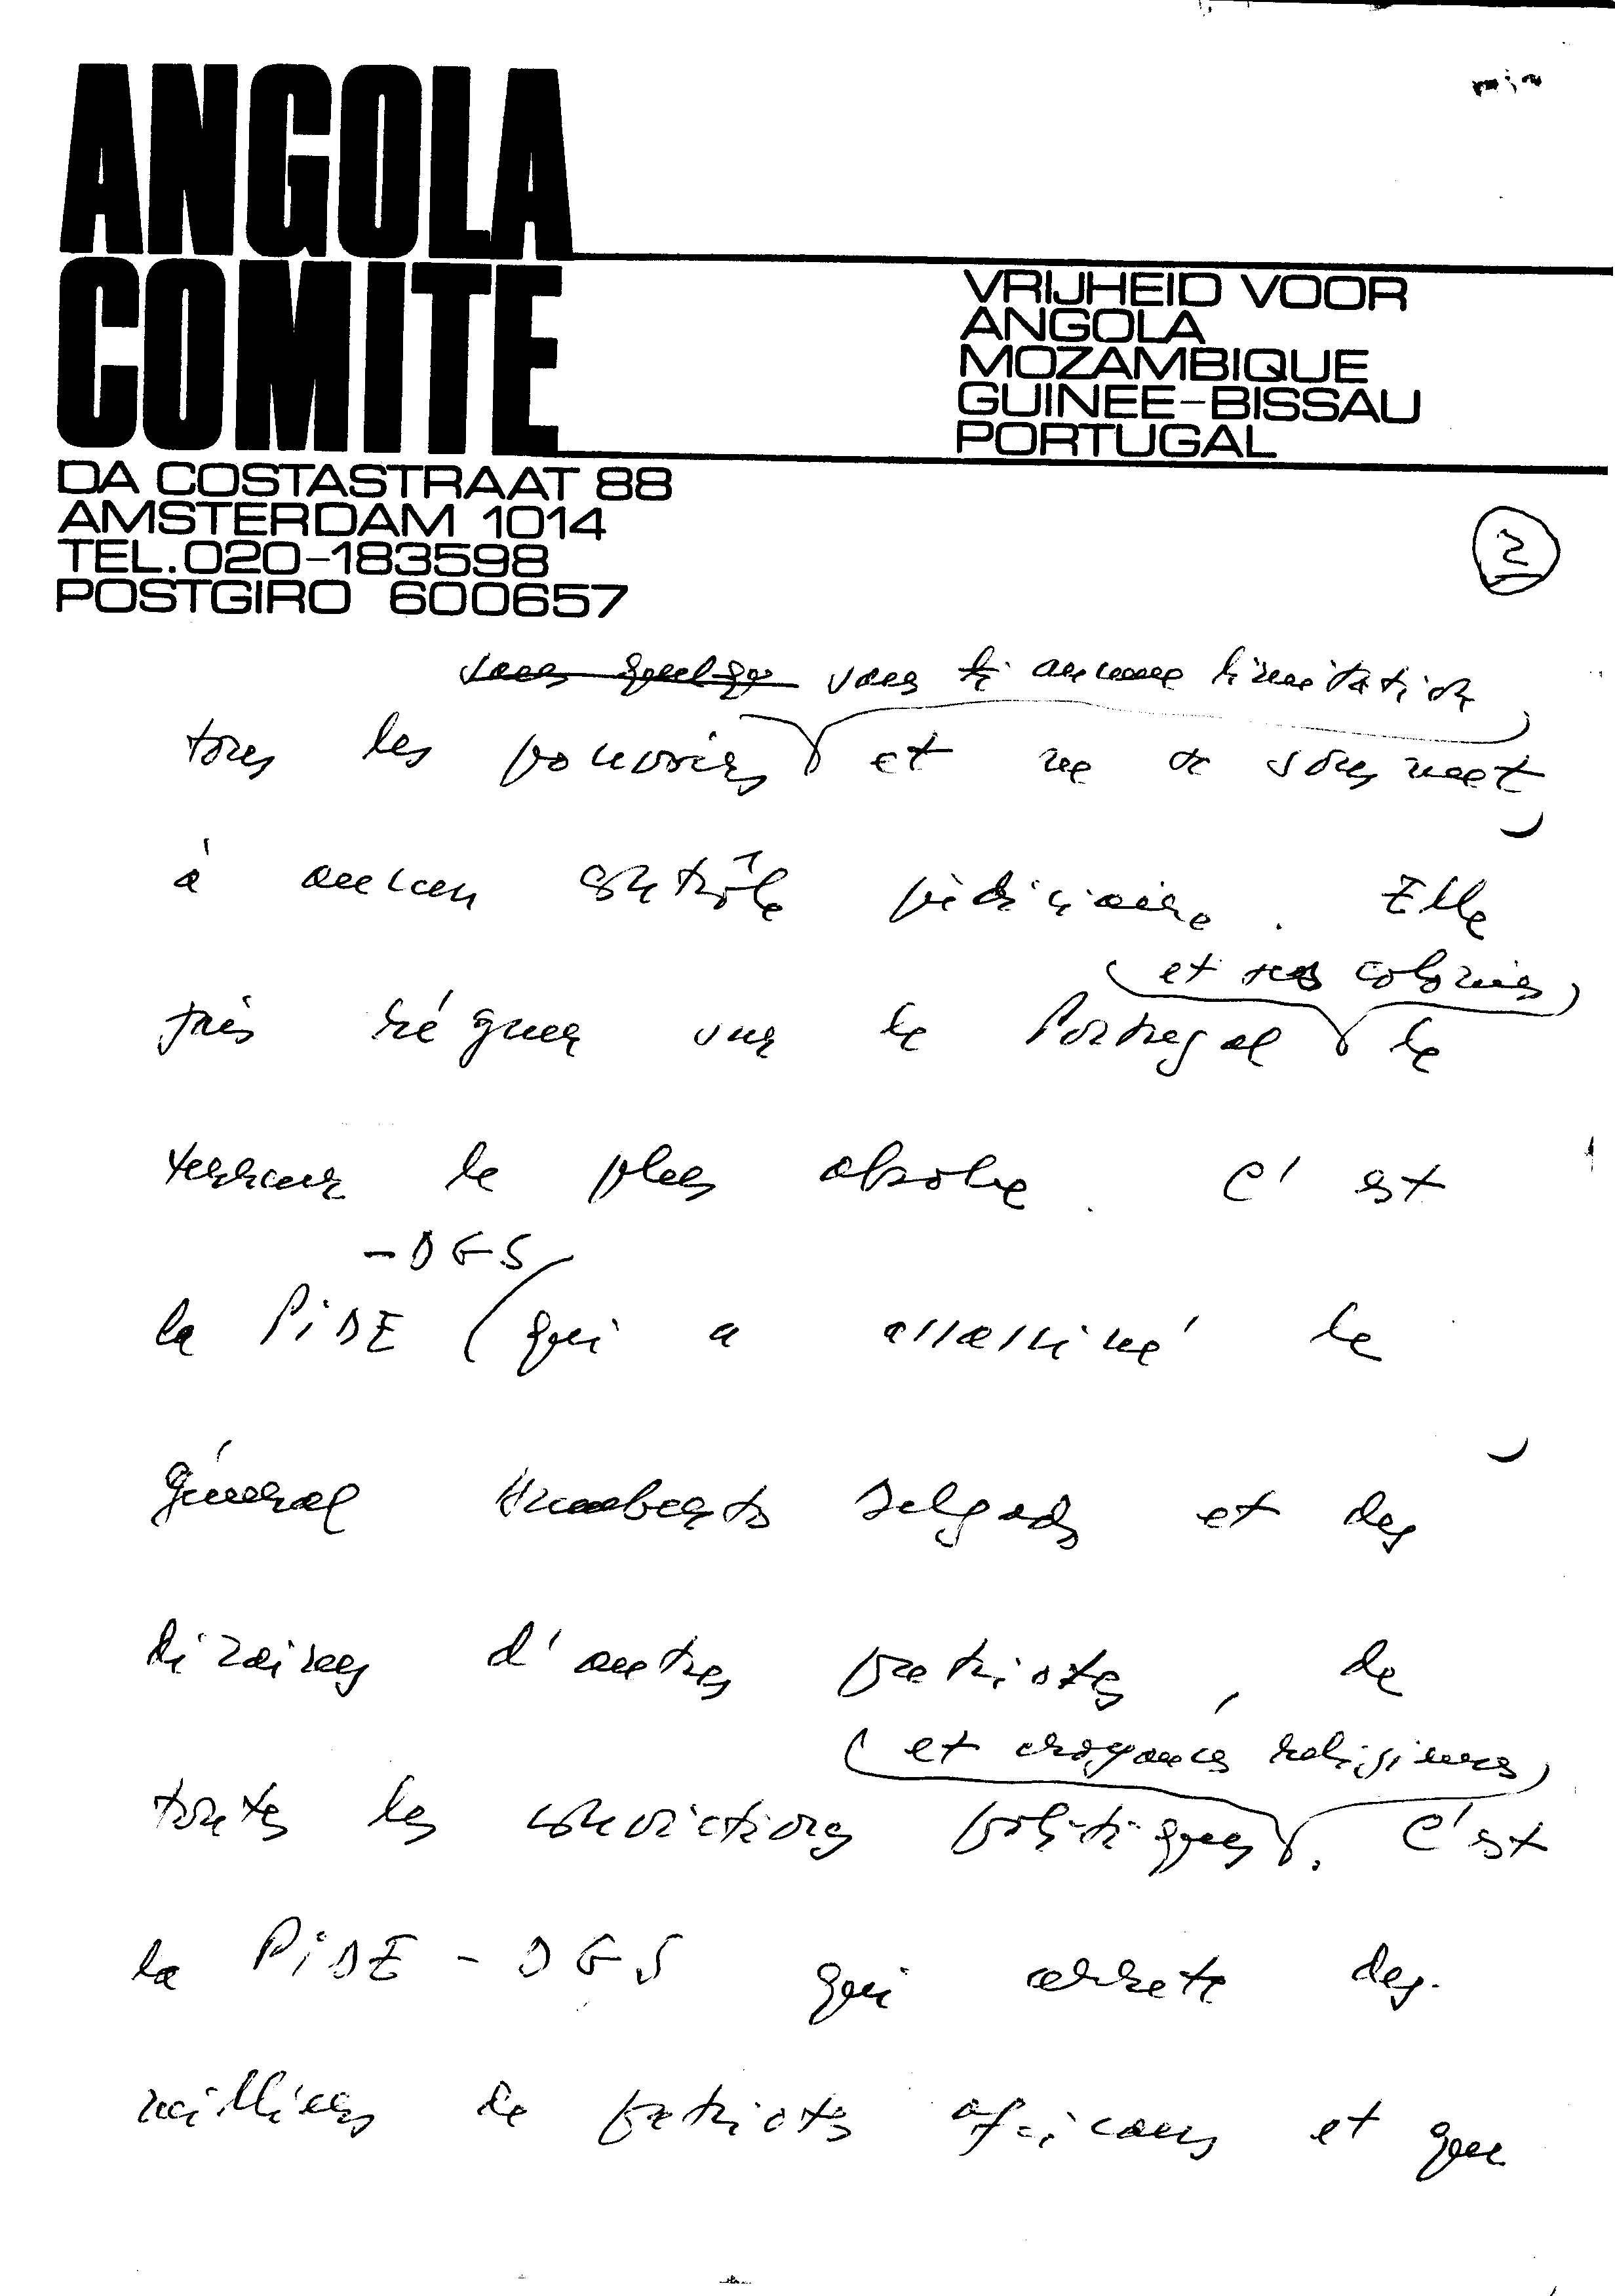 ANGOLA
COMITE
VRIJHEID VOOR
ANGOLA
MOZAMBIQUE
GUINEE-BISSAU
PORTUGAL
DA COSTASTRAAT 88
AMSTERDAM 1014
TEL.020-183598
POSTGIRO 600657
2
sans quelqu sans aucune limitation
tous les pouvoirs et ne se soumet
à aucun contrôle judiciaire. Elle
et ses colonies
fait régner sur le Portugal la
terreur la plus absolue. C'est
-DGS
la PIDE (qui a assassiné le
général Humberto Delgado et des
dizaines d'autres patriotes, de
et croyances religieuses
toutes les convictions politiques. C'est
la PIDE-DGS qui arrete des
milliers de patriotes africains et que